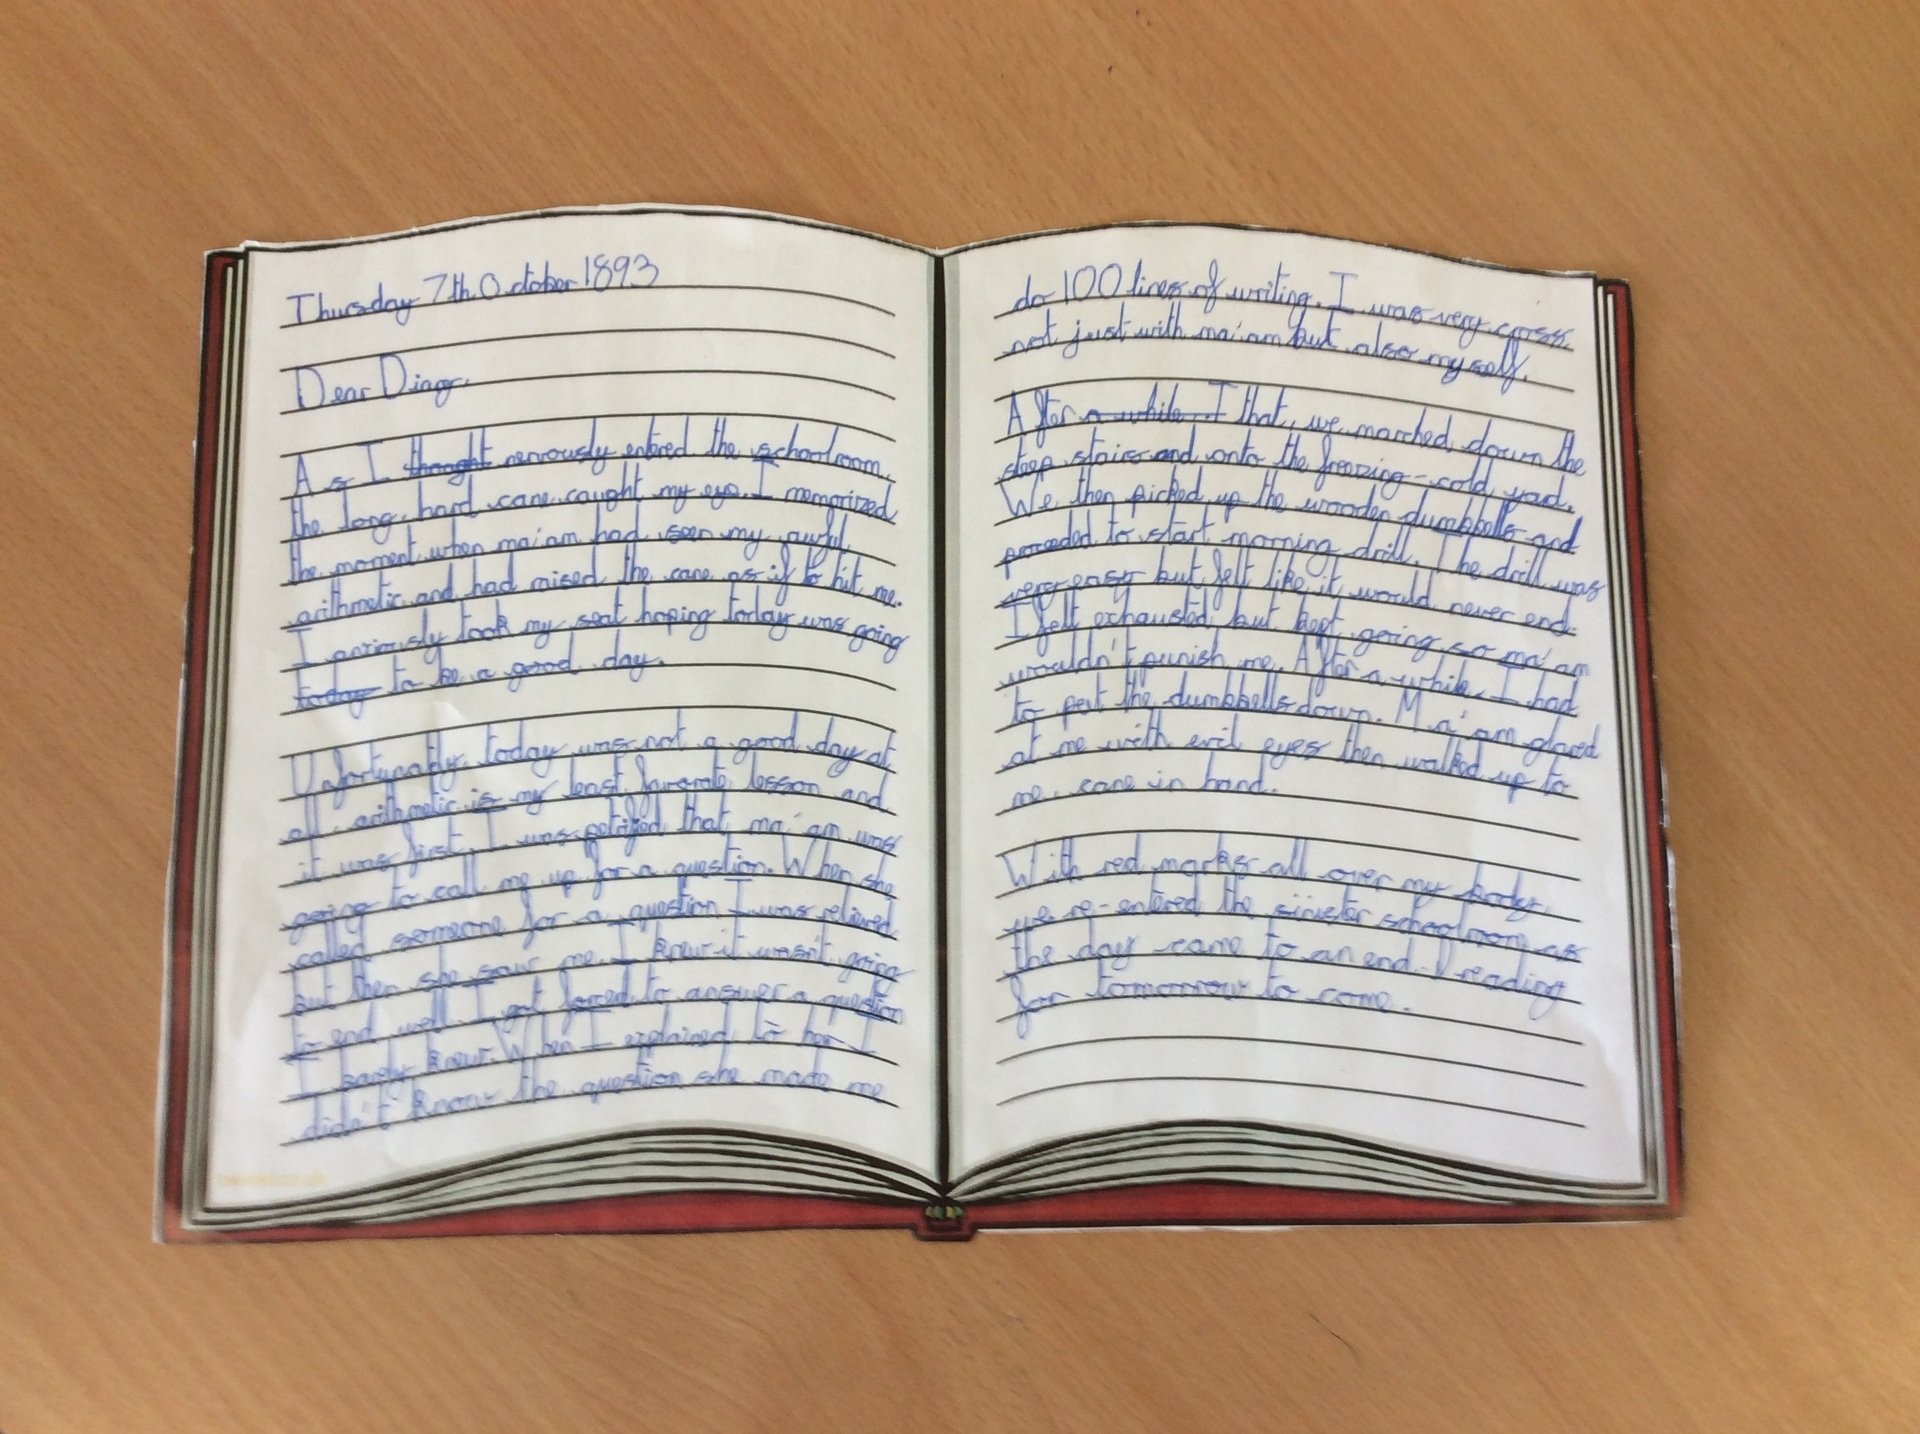 Thursday 7th October 1893
Dear Diary,
As I thought nervously entered the schoolroom,
the long, hard cane caught my eye. I memorized
the moment when ma'am had seen my awful
arithmetic and had raised the cane as if to hit me.
I anxiously took my seat hoping today was going
today to be a good day.
Unfortunatly, today was not a good day at
all, arithmetic is my least favorate lesson and
it was first. I was petrified that ma'am was
going to call me up for a question. When she
called someone for a question I was relieved
but then she saw me. I knew it wasn't going
to end well. I got forced to answer a question
I barely knew. When I explained to her I
didn't know the question she made me
do 100 lines of writing. I was very cross,
not just with ma'am but also myself.
After a while I that, we marched down the
steep stairs and onto the freezing-cold yard.
We then picked up the wooden dumbbells and
proceeded to start morning drill. The drill was
very easy but felt like it would never end.
I felt exhausted but kept going so ma'am
wouldn't punish me. After a while I had
to put the dumbbells down. Ma'am glared
at me with evil eyes then walked up to
me, cane in hand.
With red marks all over my body,
we re-entered the sinister schoolroom as
the day came to an end. reading
for tomorrow to come.